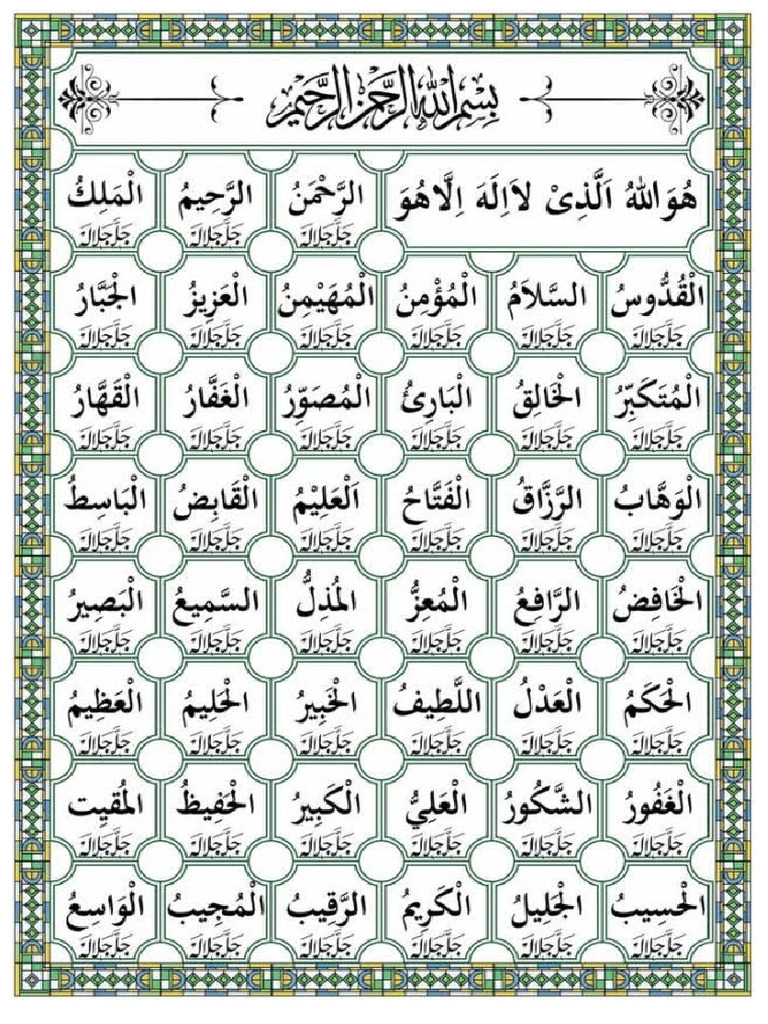 بِسْمِ اللهِ الرَّحْمٰنِ الرَّحِيْمِ
هُوَاللهُ اَلَّذِىْ لاَاِلَهَ اِلَّاهُوَ الرَّحْمَنُ الرَّحِيمُ الْمَلِكُ
جَلَّ جَلَالَهُ جَلَّ جَلَالَهُ جَلَّ جَلَالَهُ
الْقُدُّوسُ السَّلاَمُ الْمُؤْمِنُ الْمُهَيْمِنُ الْعَزِيزُ الْجَبَّارُ
جَلَّ جَلَالَهُ جَلَّ جَلَالَهُ جَلَّ جَلَالَهُ جَلَّ جَلَالَهُ جَلَّ جَلَالَهُ جَلَّ جَلَالَهُ
الْمُتَكَبِّرُ الْخَالِقُ الْبَارِئُ الْمُصَوِّرُ الْغَفَّارُ الْقَهَّارُ
جَلَّ جَلَالَهُ جَلَّ جَلَالَهُ جَلَّ جَلَالَهُ جَلَّ جَلَالَهُ جَلَّ جَلَالَهُ جَلَّ جَلَالَهُ
الْوَهَّابُ الرَّزَّاقُ الْفَتَّاحُ اَلْعَلِيْمُ الْقَابِضُ الْبَاسِطُ
جَلَّ جَلَالَهُ جَلَّ جَلَالَهُ جَلَّ جَلَالَهُ جَلَّ جَلَالَهُ جَلَّ جَلَالَهُ جَلَّ جَلَالَهُ
الْخَافِضُ الرَّافِعُ الْمُعِزُّ المُذِلُّ السَّمِيعُ الْبَصِيرُ
جَلَّ جَلَالَهُ جَلَّ جَلَالَهُ جَلَّ جَلَالَهُ جَلَّ جَلَالَهُ جَلَّ جَلَالَهُ جَلَّ جَلَالَهُ
الْحَكَمُ الْعَدْلُ اللَّطِيفُ الْخَبِيرُ الْحَلِيمُ الْعَظِيمُ
جَلَّ جَلَالَهُ جَلَّ جَلَالَهُ جَلَّ جَلَالَهُ جَلَّ جَلَالَهُ جَلَّ جَلَالَهُ جَلَّ جَلَالَهُ
الْغَفُورُ الشَّكُورُ الْعَلِيُّ الْكَبِيرُ الْحَفِيظُ المُقيِت
جَلَّ جَلَالَهُ جَلَّ جَلَالَهُ جَلَّ جَلَالَهُ جَلَّ جَلَالَهُ جَلَّ جَلَالَهُ جَلَّ جَلَالَهُ
الْحَسِيبُ الْجَلِيلُ الْكَرِيمُ الرَّقِيبُ الْمُجِيبُ الْوَاسِعُ
جَلَّ جَلَالَهُ جَلَّ جَلَالَهُ جَلَّ جَلَالَهُ جَلَّ جَلَالَهُ جَلَّ جَلَالَهُ جَلَّ جَلَالَهُ